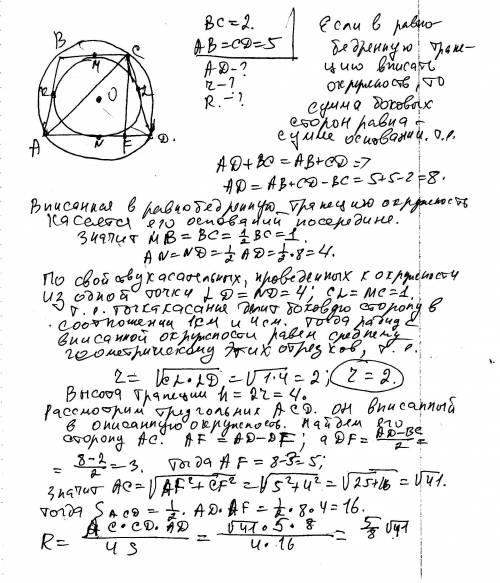 BC = 2.
AB = CD = 5
AD - ?
r - ?
R. - ?
Если в равно
бедренную трапе-
цию вписать
окружность, то
сумма боковых
сторон равна -
сумме оснований. т.е.
B C
M
K L
O
A N E D.
AD + BC = AB + CD = 7
AD = AB + CD - BC = 5 + 5 - 2 = 8.
Вписанная в равнобедренную трапецию окружность
касается его оснований посередине.
Значит MB = BC = 1/2 BC = 1.
AN = ND = 1/2 AD = 1/2 · 8 = 4.
По свойству касательных, проведенных к окружности
из одной точки LD = ND = 4; CL = MC = 1.
т.е. точка касание делит боковую сторону в
соотношении 1см и 4см. Тогда радиус
вписанной окружности равен среднему
геометрическому этих отрезков, т.е.
r = √CL · LD = √1 · 4 = 2; r = 2.
Высота трапеции h = 2r = 4.
Рассмотрим треугольник ACD. он вписанный
в описанную окружность. Найдем его
сторону AC. AF = AD - DF; а DF = AD - BC / 2 =
= 8 - 2 / 2 = 3. Тогда AF = 8 - 3 = 5;
Значит AC = √AF² + CF² = √5² + 4² = √25 + 16 = √41.
Тогда S ACD = 1/2 · AD · AF = 1/2 · 8 · 4 = 16.
R = AC · CD · AD / 4S = √41 · 5 · 8 / 4 · 16 = 5/8 √41